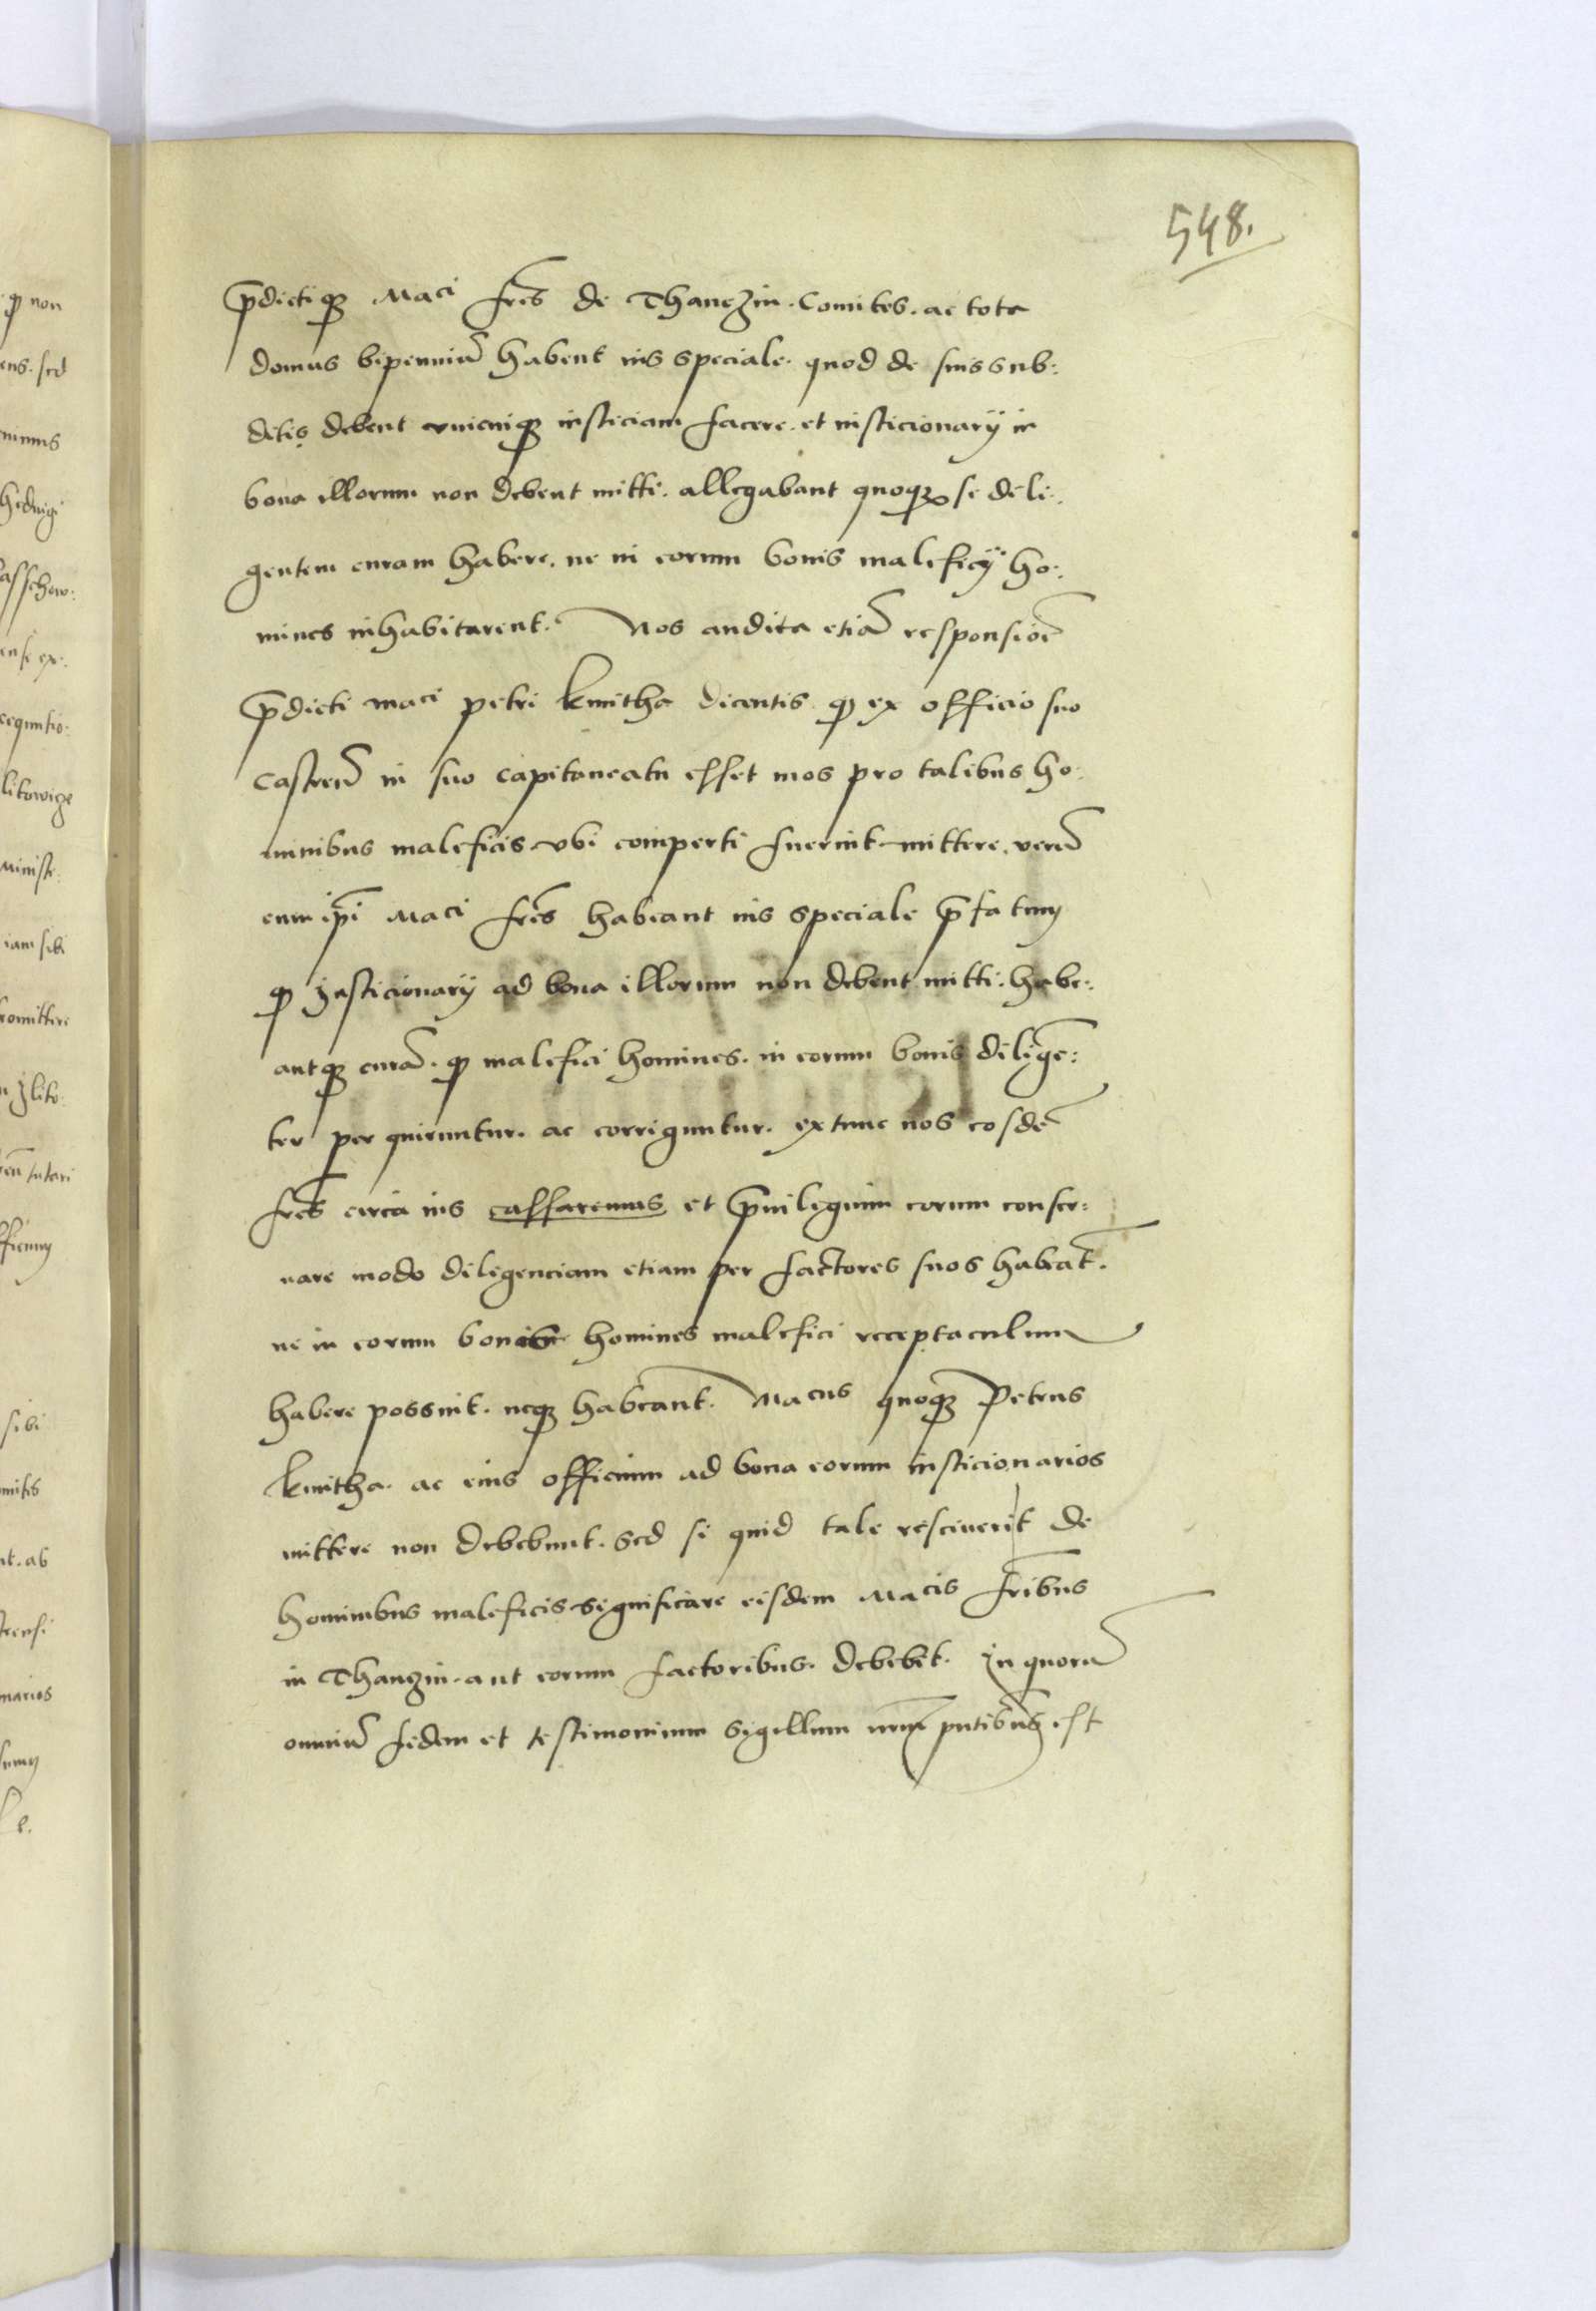 548.
p̄dictiqꝫ Maci fr̄es de Thanczin. Comites. ac tota
domus bipenniū habent ius speciale. quod de suis sub:
ditis debent vnicuiqꝫ iusticiam facere. et iusticionarÿ in
bona illorum non debent mitti. allegabant quoqꝫ se dili:
gentem curam habere. ne in eorum bonis maleficÿ ho:
mines inhabitarent. Nos audita etiā responsiōe
p̄dicti maci petri kmitha dicentis. ꝙ ex officio suo
castreñ in suo capitaneatu esset mos pro talibus ho:
minibus maleficis vbi comperti fuerint mittere. verū
cum ip̄i Maci fr̄es habeant ius speciale p̄fatum
ꝙ Justicionarÿ ad bona illorum non debent mitti. habe:
antqꝫ curā. ꝙ malefici homines. in eorum bonis diligē:
ter perquiruntur. ac corriguntur. extunc nos eosdē
fr̄es circa ius cassaremus et p̄uilegium eorum conser:
uare modo diligenciam etiam per factores suos habeāt.
ne in eorum bonis homines malefici receptaculum
habere possint. neqꝫ habeant. Macus quoqꝫ Petrus
kmitha. ac eius officium ad bona eorum iusticionarios
mittere non debebunt. Sed si quid tale resciuerit de
hominibus maleficis significare eisdem Macis fr̄ibus
in Thanzin. aut eorum factoribus. debebit. In quorū
omniū fidem et testimonium Sigillum nr̄m pn̄tibus est
q non
ens. sed
hedwigi
litowize
ministe:
iam sibi
romittere
sibi
nt. ab